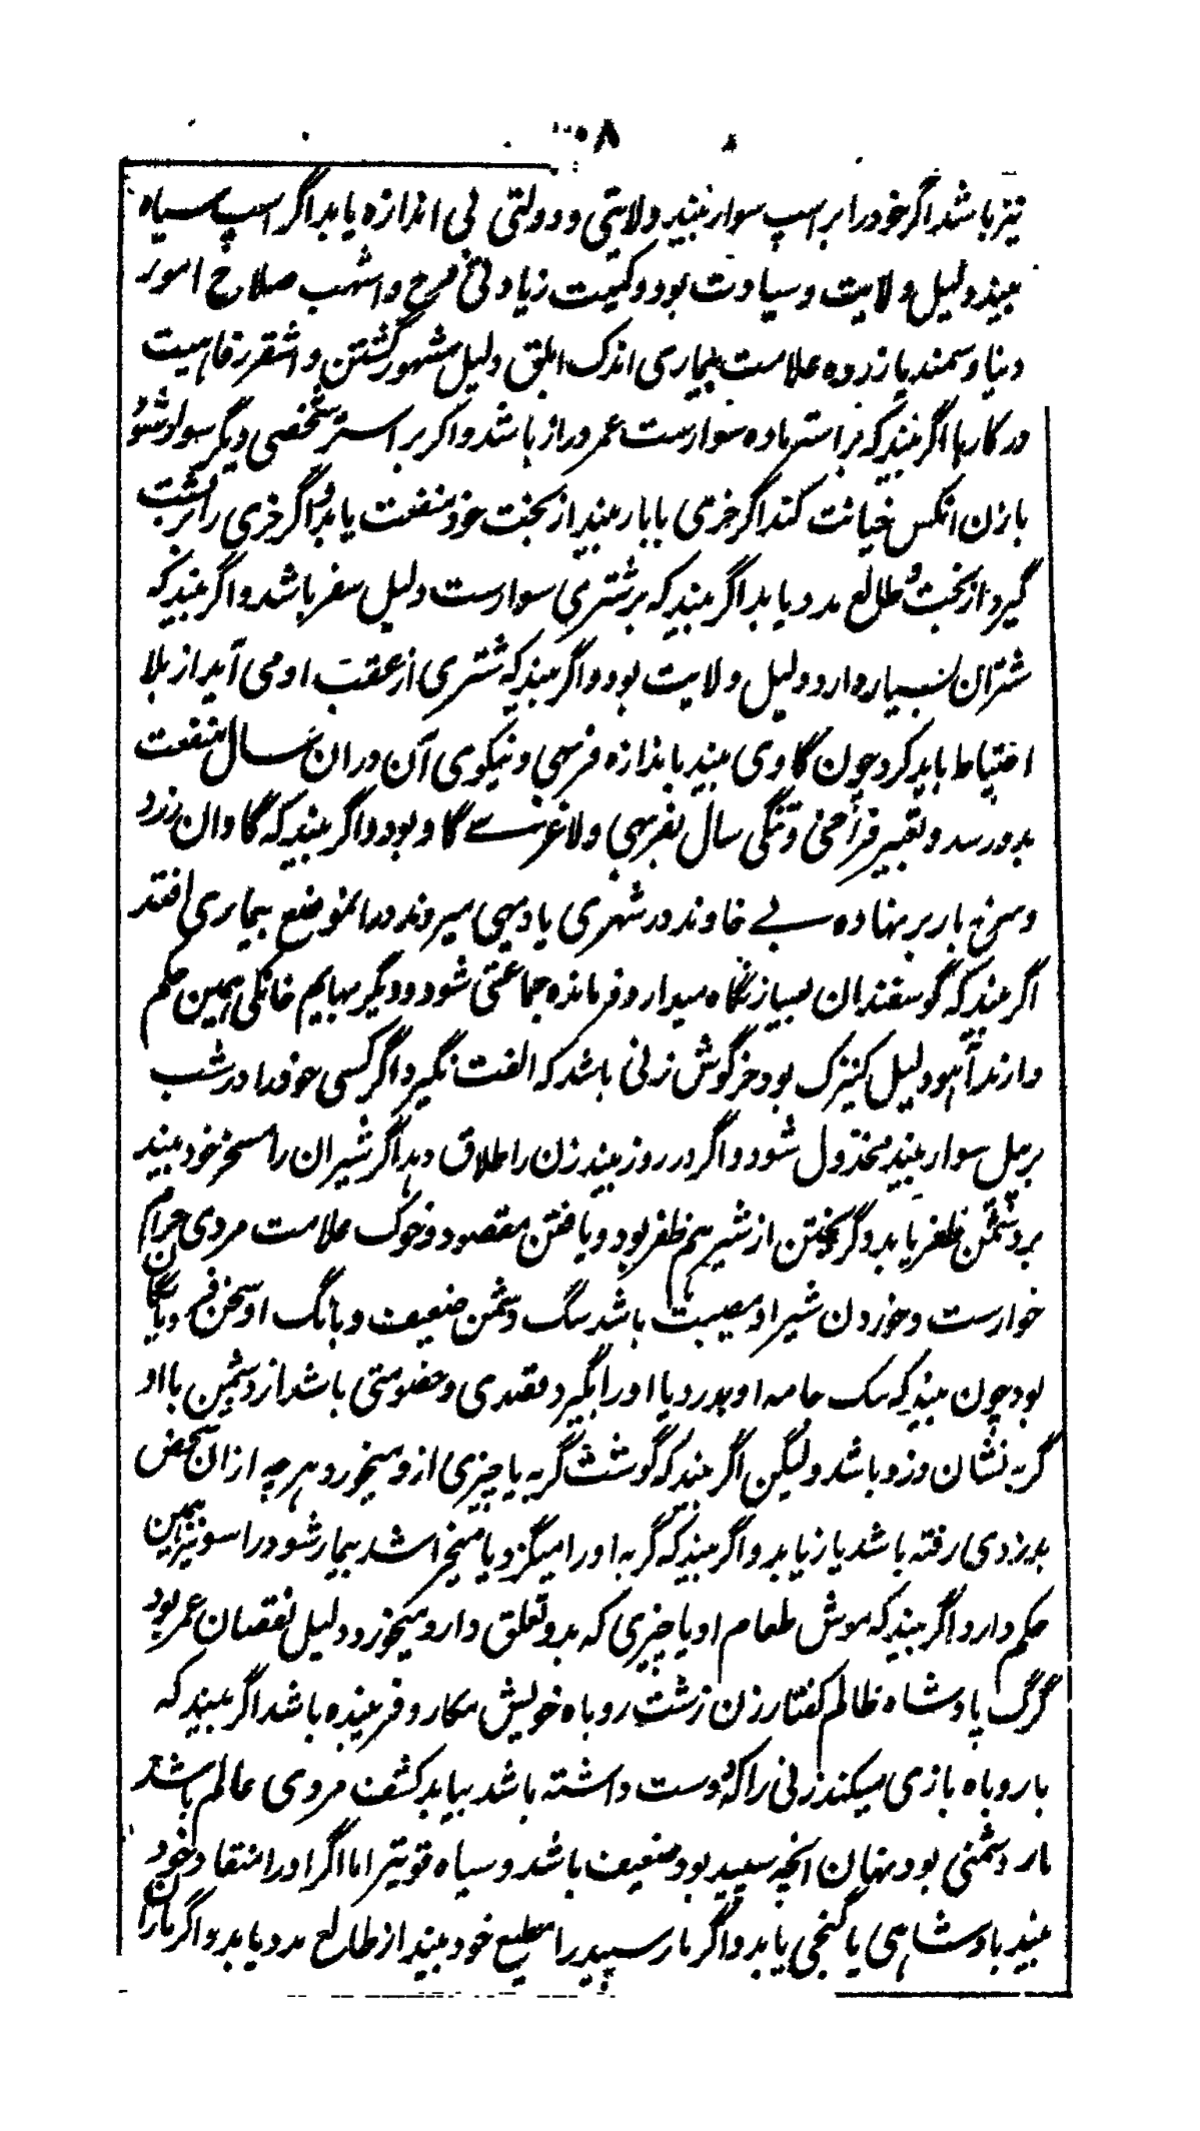 ۸
نیز باشد اگر خود را بر اسپ سوار بیند ولایتی و دولتی بی اندازه یابد اگر اسپ سیاه
بیند دلیل ولایت و سیادت بود و کمیت زیادتی فرح و اشهب صلاح امور
دنیا و سمند یا زرده علامت بیماری اندک ابلق دلیل مشهور گشتن و اشقر رفاهیت
در کارها اگر بیند که بر استر ماده سوارست عمر دراز باشد و اگر بر استر شخصی دیگر سوار شود
با زن انکس خیانت کند اگر خری با بار بیند از بخت خود منفعت یابد و اگر خری را بر پشت
گیرد از بخت و طالع مدد یابد اگر بیند که بر شتری سوارست دلیل سفر باشد و اگر بیند که
شتران بسیار دارد دلیل ولایت بود و اگر بیند که شتری از عقب او می آید از بلا
احتیاط باید کرد چون گاوی بیند باندازه فربهی و نیکوی آن در ان سال منفعت
بدو رسد و تعبیر فراخی و تنگی سال بفربهی و لاغری گاو بود و اگر بیند که گاوان زرد
و سرخ بار بر نهاده بے خاوند در شهری یا دیهی میروند در انموضع بیماری افتد
اگر بیند که گوسفندان بسیار نگاه میدارد فرمانده جماعتی شود و دیگر بهایم خانگی همین حکم
دارند آهو دلیل کنیزک بود خرگوش زنی باشد که الفت نگیرد اگر کسی خود را در شب
بر پیل سوار بیند مخذول شود و اگر در روز بیند زن را طلاق دهد اگر شیران را مسخر خود بیند
بر دشمن ظفر یابد و گریختن از شیر هم ظفر بود و یافتن مقصود و خوک علامت مردی حرام
خوارست و خوردن شیر او مصیبت باشد سگ دشمن ضعیف و بانگ او سخن فرو مایگان
بود چون بیند که سگ جامه او بدرد یا او را بگیرد قصدی و خصومتی باشد از دشمن با او
گربه نشان دزد باشد ولیکن اگر بیند که گوشت گربه یا چیزی ازو میخورد هرچه از ان شخص
بدزدی رفته باشد باز یابد و اگر بیند که گربه او را میگزد یا میخراشد بیمار شود و راسو نیز همین
حکم دارد اگر بیند که موش طعام او یا چیزی که بدو تعلق دارد میخورد دلیل نقصان عمر بود
گرگ پادشاه ظالم کفتار زن زشت روباه خویش مکار و فریبنده باشد اگر بیند که
با روباه بازی میکند زنی را که دوست داشته باشد بیابد کشف مردی عالم باشد
مار دشمنی بود نهان انچه سپید بود ضعیف باشد و سیاه قویتر اما اگر او را منقاد خود
بیند بادشاهی یا گنجی یابد و اگر مار سپید را مطیع خود بیند از طالع مدد یابد و اگر ماران